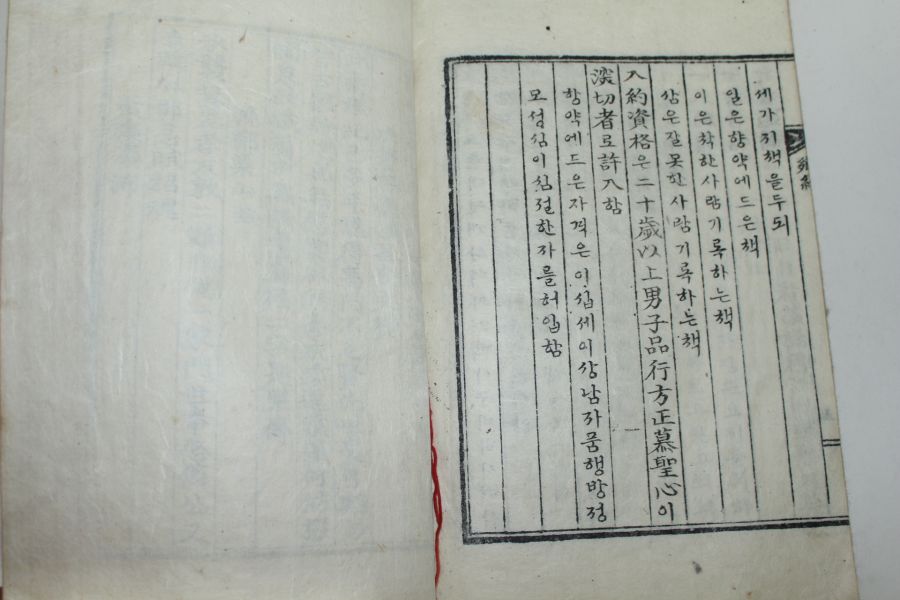 세가지책을두되
일은향약에드은책
이은착한사람기록하는책
삼은잘못한사람기록하는책
入約資格은二十歲以上男子品行方正慕聖心이
深切者로許入함
향약에드은자격은이십세이상남자품행방정
모성심이심절한자를허입함